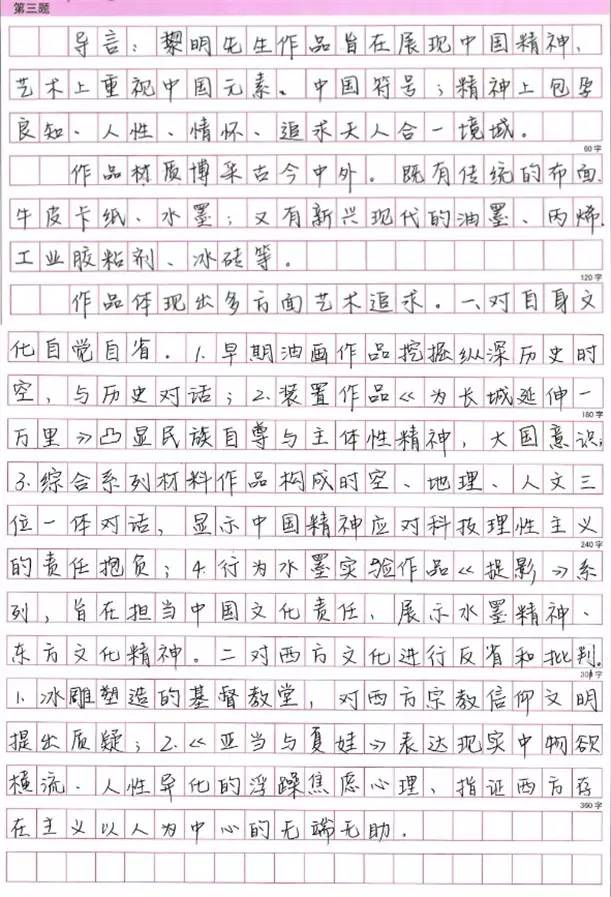 第三题
导言：黎明先生作品旨在展现中国精神、
艺术上重视中国元素、中国符号；精神上包孕
良知、人性、情怀、追求天人合一境域。
60字
作品材质博采古今中外。既有传统的布面、
牛皮卡纸、水墨；又有新兴现代的油墨、丙烯、
工业胶粘剂、冰砖等。
120字
作品体现出多方面艺术追求。一、对自身文
化自觉自省。1.早期油画作品挖掘纵深历史时
空，与历史对话；2.装置作品《为长城延伸一
180字
万里》凸显民族自尊与主体性精神，大国意识；
3.综合系列材料作品构成时空、地理、人文三
位一体对话，显示中国精神应对科技理性主义
240字
的责任抱负；4.行为水墨实验作品《捉影》系
列，旨在担当中国文化责任、展示水墨精神、
东方文化精神。二对西方文化进行反省和批判。
300字
1.冰雕塑造的基督教堂，对西方宗教信仰文明
提出质疑；2.《亚当与夏娃》表达现实中物欲
横流、人性异化的浮躁焦虑心理、指证西方存
360字
在主义以人为中心的无端无助.